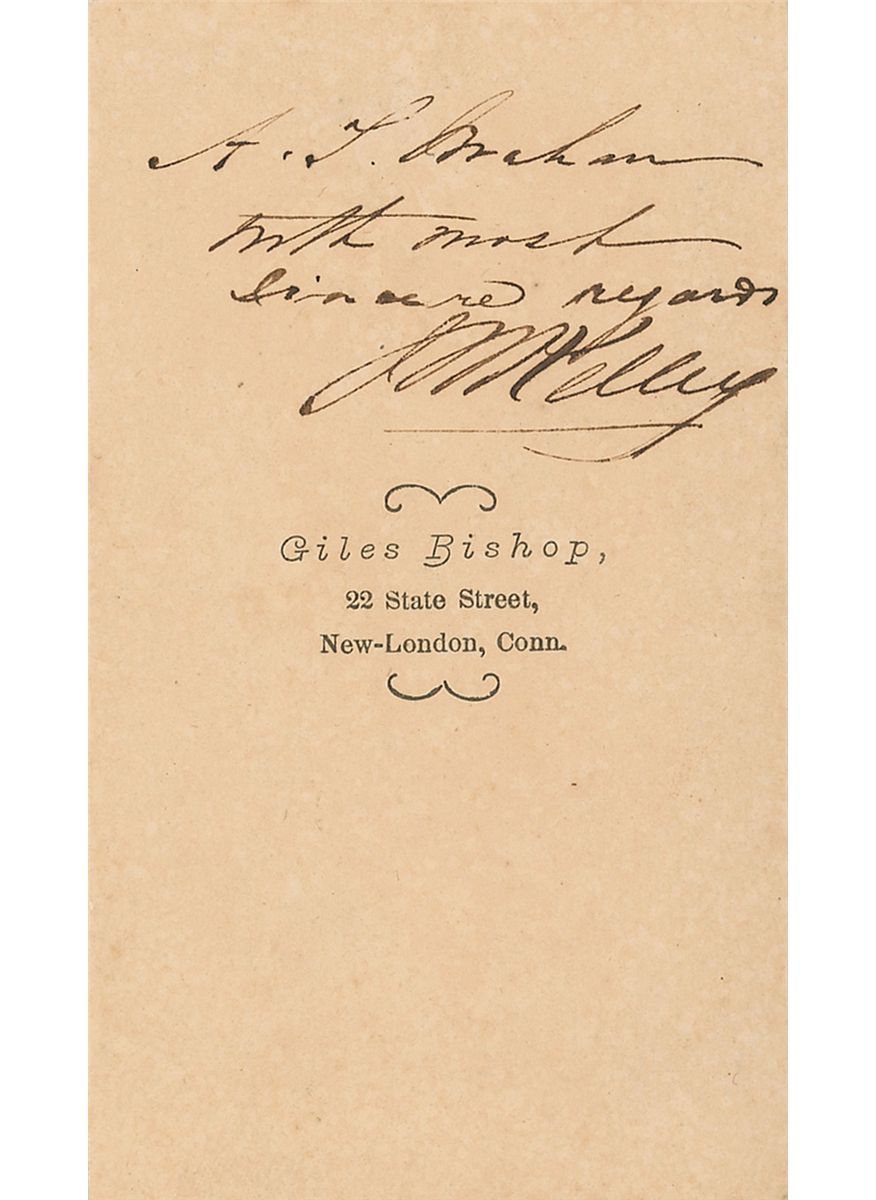 A. T. Graham
with most
sincere regards
J M Kelley
Giles Bishop,
22 State Street,
New-London, Conn.